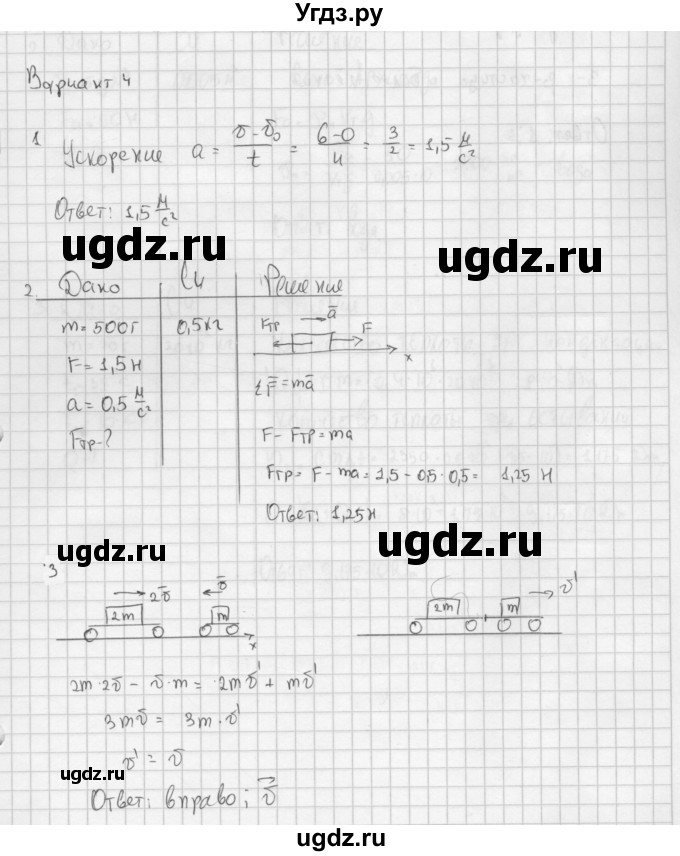 Угдз.ру
Вариант 4
1
Ускорение a = (v - v₀)/t = (6-0)/4 = 3/2 = 1,5 м/с²
Ответ: 1,5 м/с²
ugdz.ru ugdz.ru
2. Дано Си Решение
m = 500 г 0,5 кг
F = 1,5 н
a = 0,5 м/с²
Fтр - ?
Fтр a̅ F x
Σ F̅ = ma̅
F - Fтр = ma
Fтр = F - ma = 1,5 - 0,5 · 0,5 = 1,25 Н
Ответ: 1,25 н
ugdz.ru ugdz.ru
3
2v̅ v̅ v'
2m m x 2m m
2m · 2v - v · m = 2mv' + mv'
3mv = 3m · v'
v' = v
ugdz.ru
Ответ: вправо; v⃗
ugdz.ru ugdz.ru
ugdz.ru